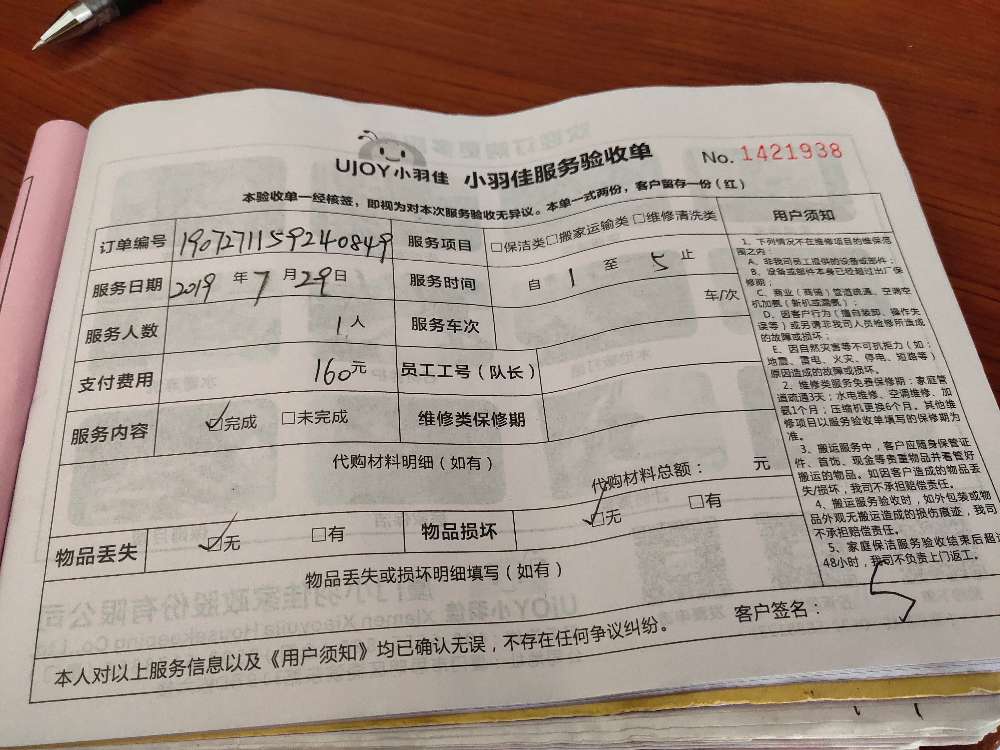 UJOY小羽佳 小羽佳服务验收单 No. 1421938
本验收单一经核签，即视为对本次服务验收无异议。本单一式两份，客户留存一份（红）
订单编号 1907271159240849 服务项目 □保洁类□搬家运输类□维修清洗类
服务日期 2019 年 7 月 29 日 服务时间 自 1 至 5 止
服务人数 1 人 服务车次 车/次
支付费用 160元 员工工号（队长）
服务内容 ☑完成 □未完成 维修类保修期
代购材料明细（如有）
代购材料总额： 元
物品丢失 ☑无 □有 物品损坏 ☑无 □有
物品丢失或损坏明细填写（如有）
客户签名：
本人对以上服务信息以及《用户须知》均已确认无误，不存在任何争议纠纷。
用户须知
1、下列情况不在维修项目的维保范
围之内
A、非我司员工提供的设备或部件；
B、设备或部件本身已经超过出厂保
修期；
C、商业（商铺）管道疏通、空调空
机加氨（新机或漏氨）；
D、因客户行为（擅自装卸、操作失
误等）或另请非我司人员检修所造成
的故障或损坏；
E、因自然灾害等不可抗拒力（如：
地震、雷电、火灾、停电、短路等）
原因造成的故障或损坏。
2、维修类服务免费保修期：家庭管
道疏通3天；水电维修、空调维修、加
氨1个月；压缩机更换6个月。其他维
修项目以服务验收单填写的保修期为
准。
3、搬运服务中，客户应随身保管证
件、首饰、现金等贵重物品并看管好
搬运的物品。如因客户造成的物品丢
失/损坏，我司不承担赔偿责任。
4、搬运服务验收时，如外包装或物
品外观无搬运造成的损伤痕迹，我司
不承担赔偿责任。
5、家庭保洁服务验收结束后超过
48小时，我司不负责上门返工。